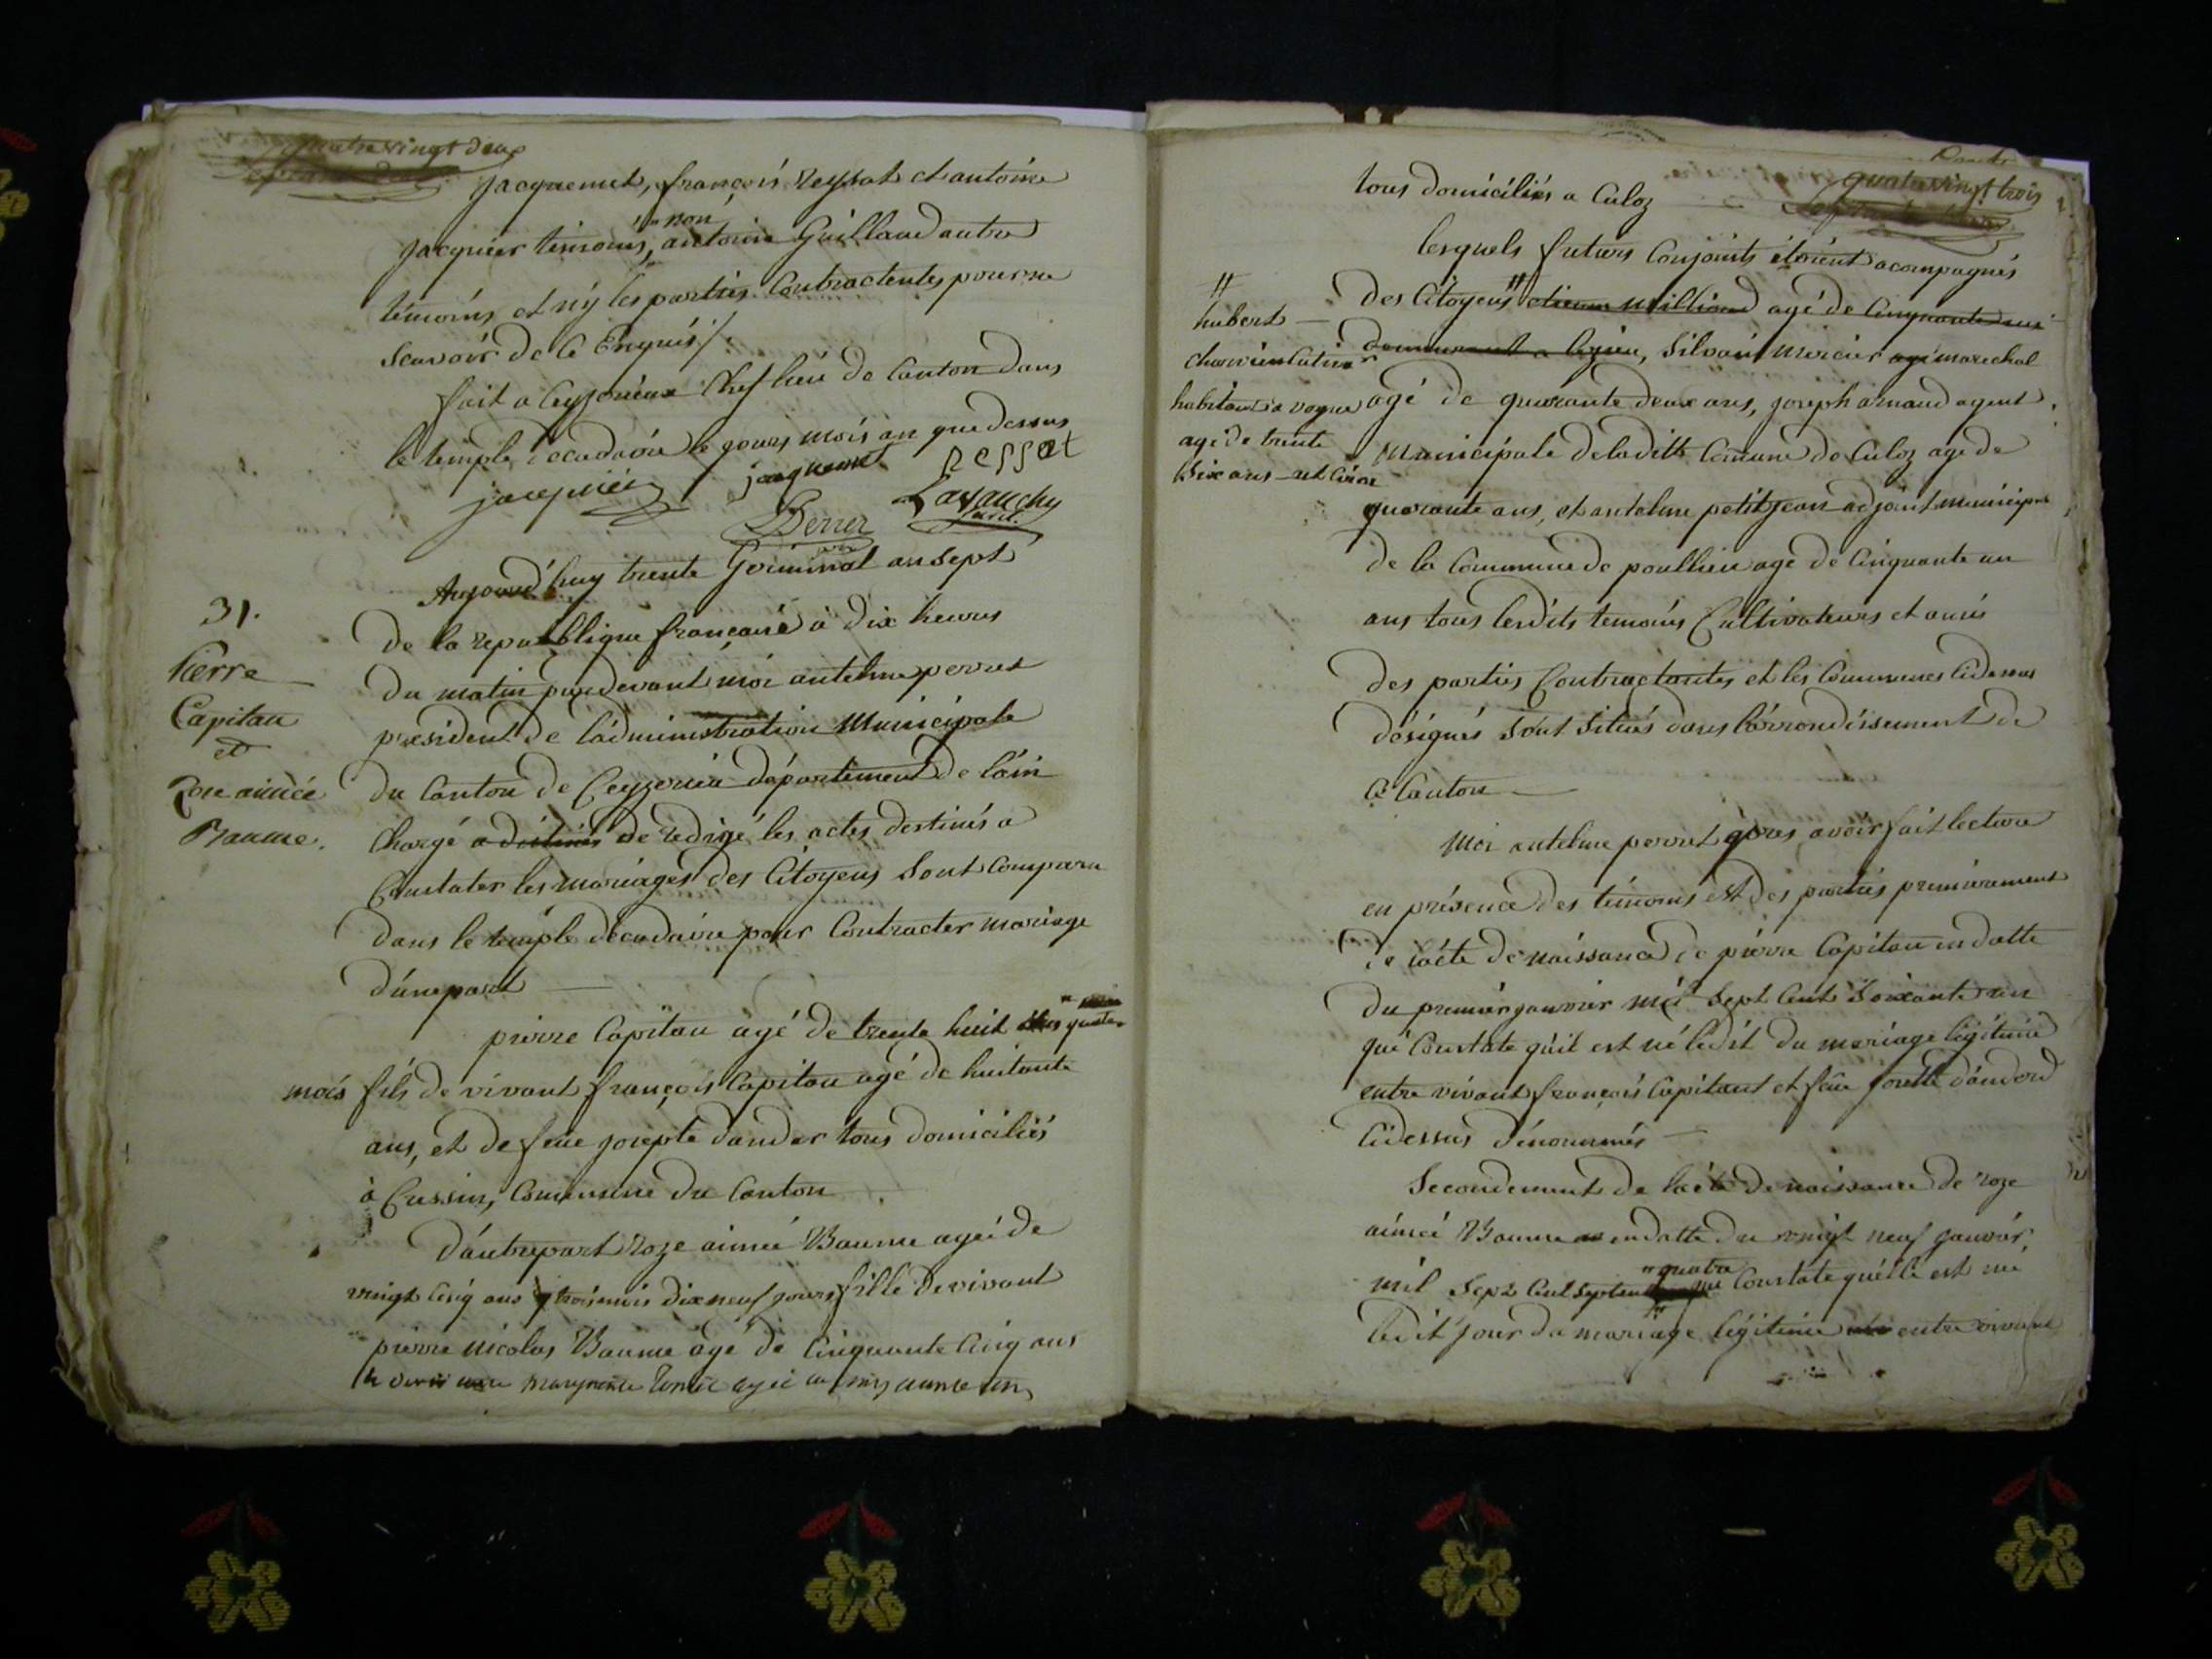 quatre vingt deux
jacquemet, françois reyssat et antoine
"non
jacquier temoins, antoine Guillaud autre
témoins et ny les parties Contractentes pour ne
scavoir de ce Enquis /.
fait a Ceyzerieux Cheflieu de Canton dans
le temple decadaire le jours mois an que dessus
jacquier jacquemet ressat
Perret Lavauchy
31.
Pierre
Capitan
et
Roze aimée
Baume.
Aujourd'huy trente Germinal an sept
de la republique française à dix heures
du matin pardevant moi antelme perret
président de l'administration Municipale
du Canton de Ceyzerieu département de l'ain
Chargé a destinés de redigé les actes destinés a
Constater les mariages des Citoyens sont Comparu
dans le temple décadaire pour Contracter mariage
d'une part
pierre Capitan agé de trente huit ans quatre
mois fils de vivant françois Capitan agé de huitante
ans, et de feue josepte dandar tous domiciliés
à Cussin, Commune du Canton
d'autrepart roze aimée Baume agée de
vingt cinq ans trois mois dix neuf jours fille de vivant
pierre nicolas Baume agé de Cinquante Cinq ans
quatre vingt trois
tous domiciliés a Culoz
lesquels futurs Conjoints étoient acompagnés
des Citoyens # etienne milliand agé de Cinquante six
demeurant a legieu, Silvain mercier agé marechal
#
hubert
habitant a vogne
agé de trente
Six ans
agé de quarante deux ans, joseph arnaud agent
Municipale de laditte Comune de Culoz age de
quarante ans, et antelme petitjean adjoint municipal
de la Commune de poullieu agé de Cinquante un
ans tous lesdits temoins Cultivateurs et amis
des parties Contractantes et les Communes cidessus
désignés sont situés dans l'arrondissement de
ce Canton
Moi antelme perret apres avoir fait lecture
en présence des témoins et des parties premierement
de l'acte de naissance de pierre Capitan en datte
du premier janvier mil sept cent soixante un
qui Constate qu'il est né ledit du mariage légitime
entre vivant françois Capitant et feue josette dandard
cidessus dénommés
Secondement de l'acte de naissance de roze
aimée Baume en datte du vingt neuf janvier
"quatre
mil sept Cent septente qui Constate quelle est née
ledit jour du mariage légitime entre vivant